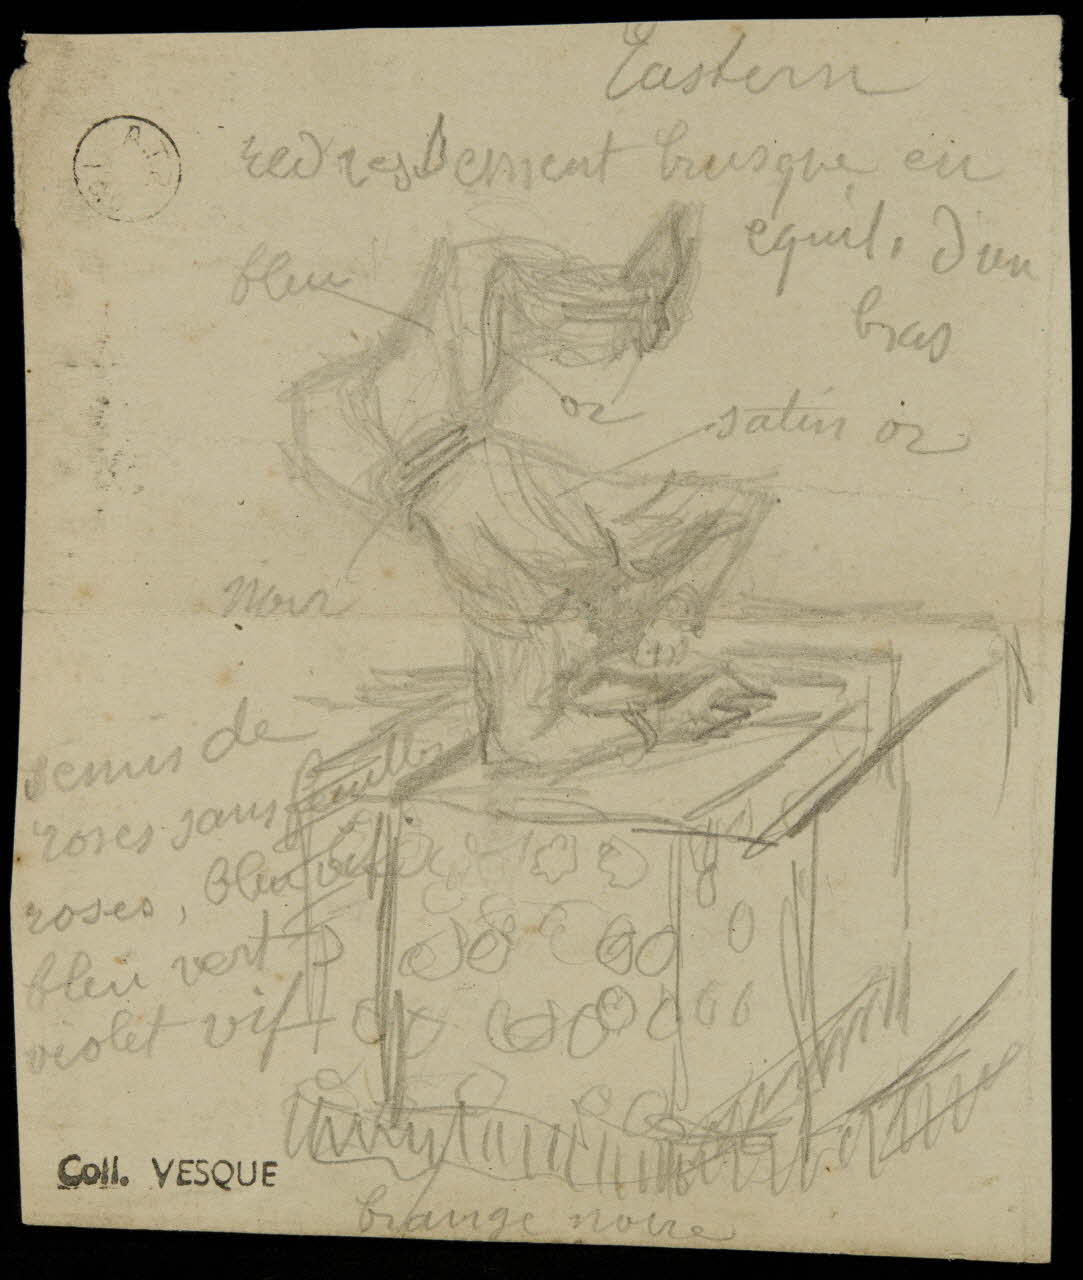 Eastern
redressement brusque en
equil. d'un
bras
bleu
or
satin or
Noir
semis de
roses sans feuilles
roses, bleu vif
bleu vert
violet vif
Coll. VESQUE
frange noire